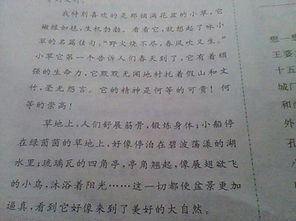 我特别喜欢的是那摆满花盆的小草，它
嫩绿如毯，生机勃勃。看着它，就想起了咏小
草的名篇佳句：“野火烧不尽，春风吹又生。”
小草它第一个告诉人们春天到了，它有着顽
强的生命力，它默默无闻地衬托着假山和文
竹，毫无怨言。它的精神是何等的可贵！何
等的崇高！
草地上，人们舒展筋骨，锻炼身体；小船停
在绿茵茵的草地上，好像停泊在碧波荡漾的湖
水里；琉璃瓦的四角亭，亭角翘起，像展翅欲飞
的小鸟，沐浴着阳光……这一切都使盆景更加
逼真，看到它好像来到了美好的大自然。
想一
王婆
十五
城门
和
外